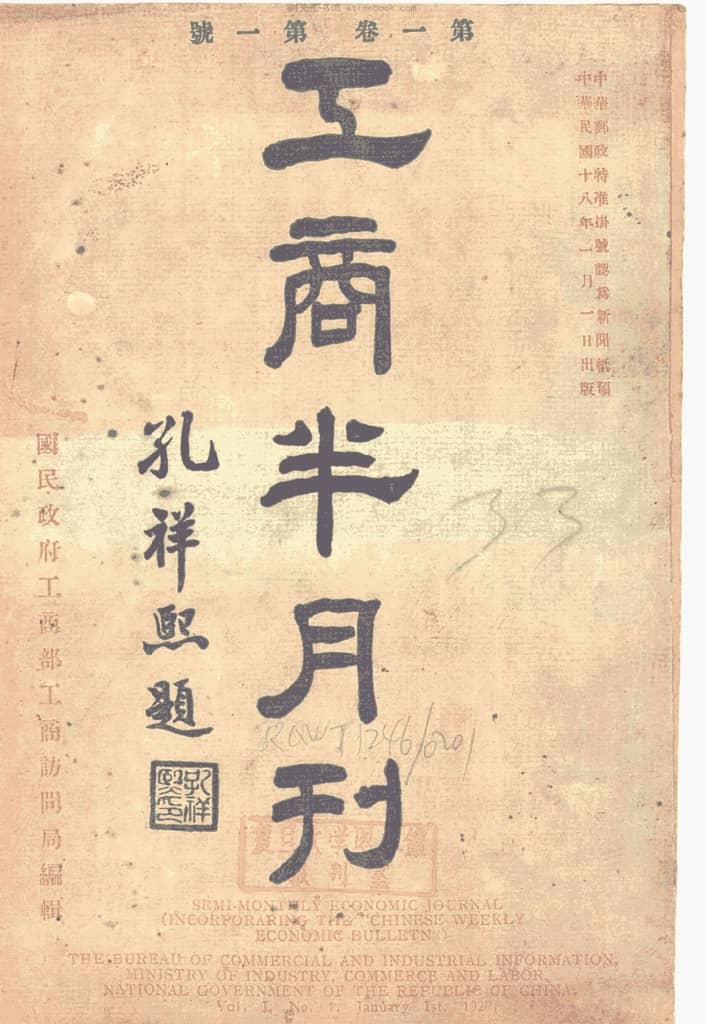 第一卷 第一號
中華郵政特准掛號認爲新聞紙類
中華民國十八年一月一日出版
工商半月刊
孔祥熙題
孔祥熙印
國民政府工商部工商訪問局編輯
SEMI-MONTHLY ECONOMIC JOURNAL
(INCORPORARING THE "CHINESE WEEKLY
ECONOMIC BULLETN")
THE BUREAU OF COMMERCIAL AND INDUSTRIAL INFORMATION,
MINISTRY OF INDUSTRY, COMMERCE AND LABOR,
NATIONAL GOVERNMENT OF THE REPUBLIC OF CHINA.
Vol. I, No. 1, January 1st. 1929,